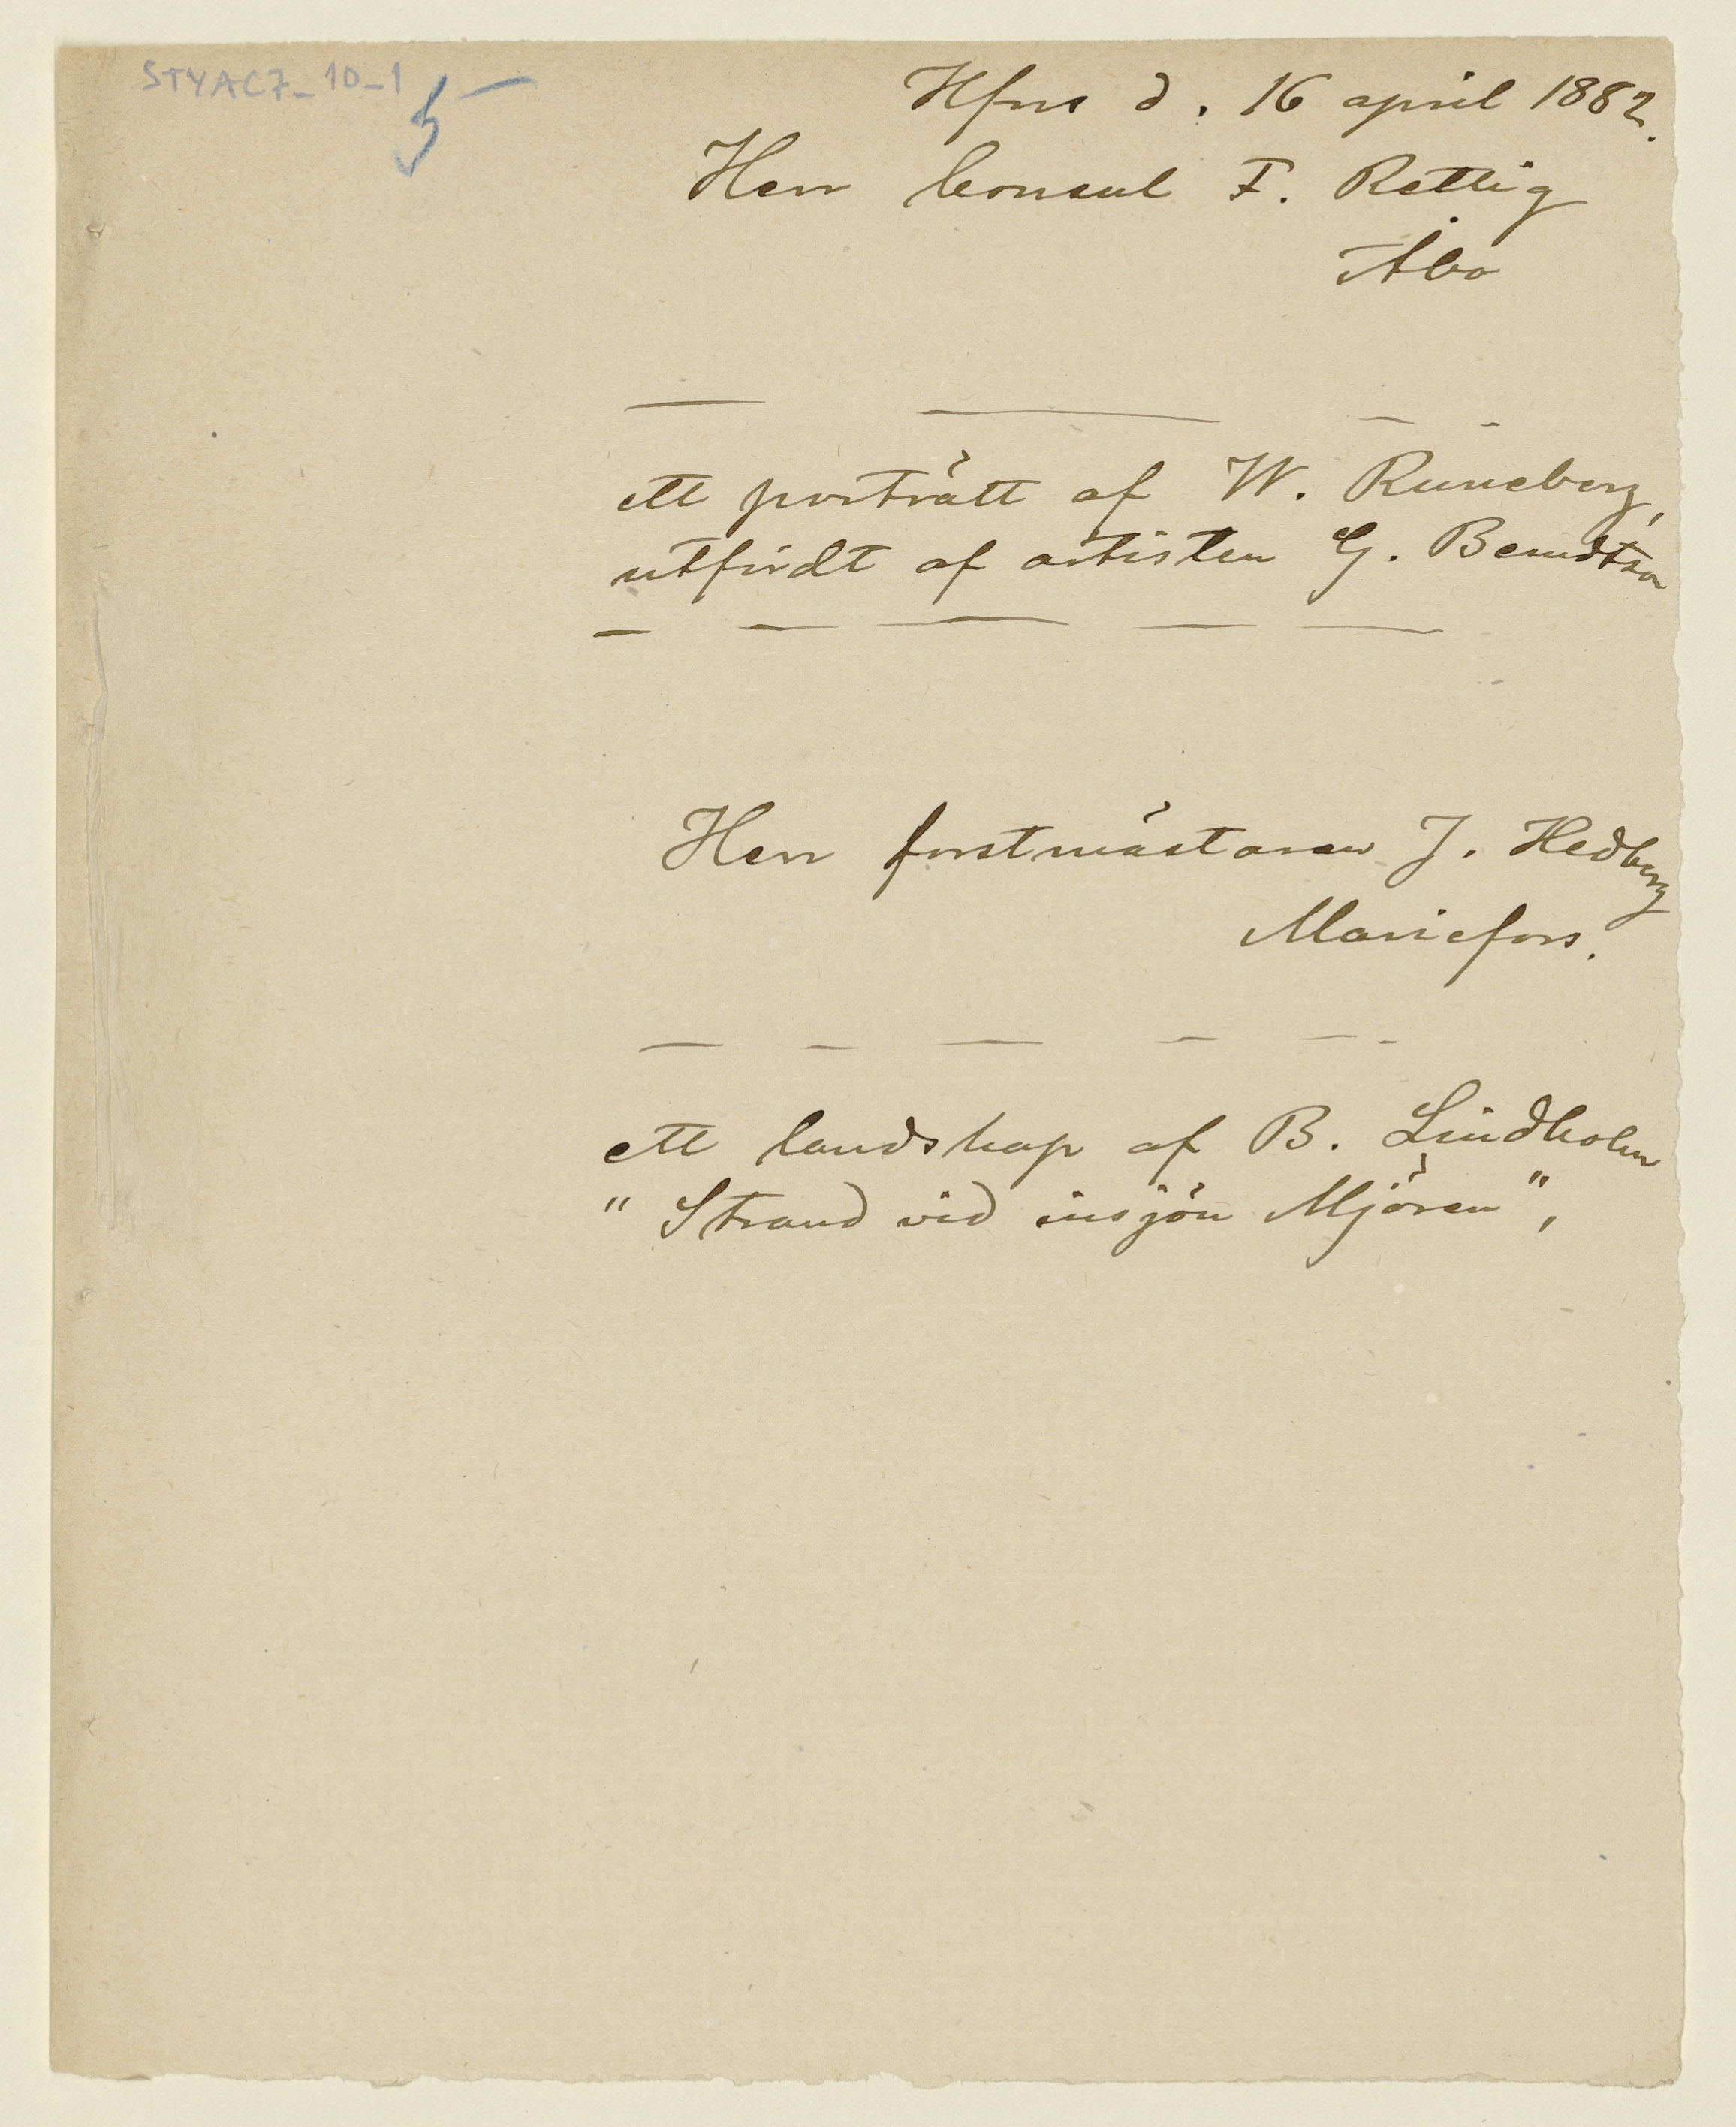 STYAC7_10_1
5
Hfors d. 16 april 1882.
Herr Consul F. Rettig
Åbo
ett porträtt af W. Runeberg,
utfördt af artisten G. Berndtson
Herr forstmästaren J. Hedberg
Mariefors.
ett landskap af B. Lindholm
" Strand vid insjön Mjören",